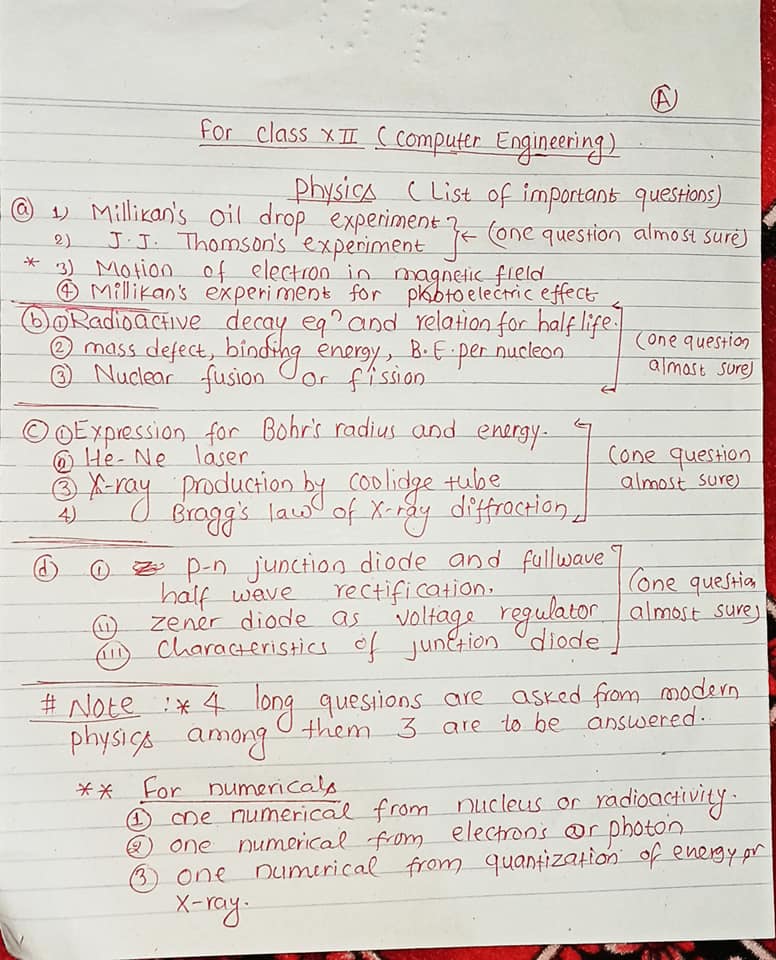 Ⓐ
For class XII (Computer Engineering)
Physics (List of important questions)
ⓐ 1) Millikan's oil drop experiment
2) J.J. Thomson's experiment ← (one question almost sure)
* 3) Motion of electron in magnetic field
④ Millikan's experiment for photoelectric effect
ⓑ ① Radioactive decay eqⁿ and relation for half life.
② mass defect, binding energy, B.E. per nucleon (one question
③ Nuclear fusion or fission almost sure)
ⓒ ① Expression for Bohr's radius and energy.
② He-Ne laser (one question
③ X-ray production by coolidge tube almost sure)
4) Bragg's law of X-ray diffraction
ⓓ ① p-n junction diode and fullwave
half wave rectification. (one question
(ii) zener diode as voltage regulator almost sure)
(iii) Characteristics of junction diode
# Note :* 4 long questions are asked from modern
physics among them 3 are to be answered.
** For numericals
① one numerical from nucleus or radioactivity.
② one numerical from electrons or photon
③ one numerical from quantization of energy or
X-ray.